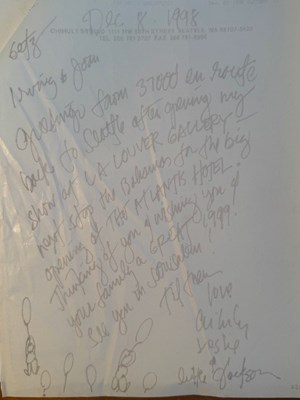 Dec 8, 1998
Irving & Joan
Greetings from 37000 en route
back to Seattle after opening my
show at LA LOUVER GALLERY
next stop the Bahamas for the big
opening of THE ATLANTIS HOTEL.
Thinking of you & wishing you &
your family a GREAT 1999!
See you in Jerusalem!
Til then
love
Chihuly
Leslie
&
little Jackson